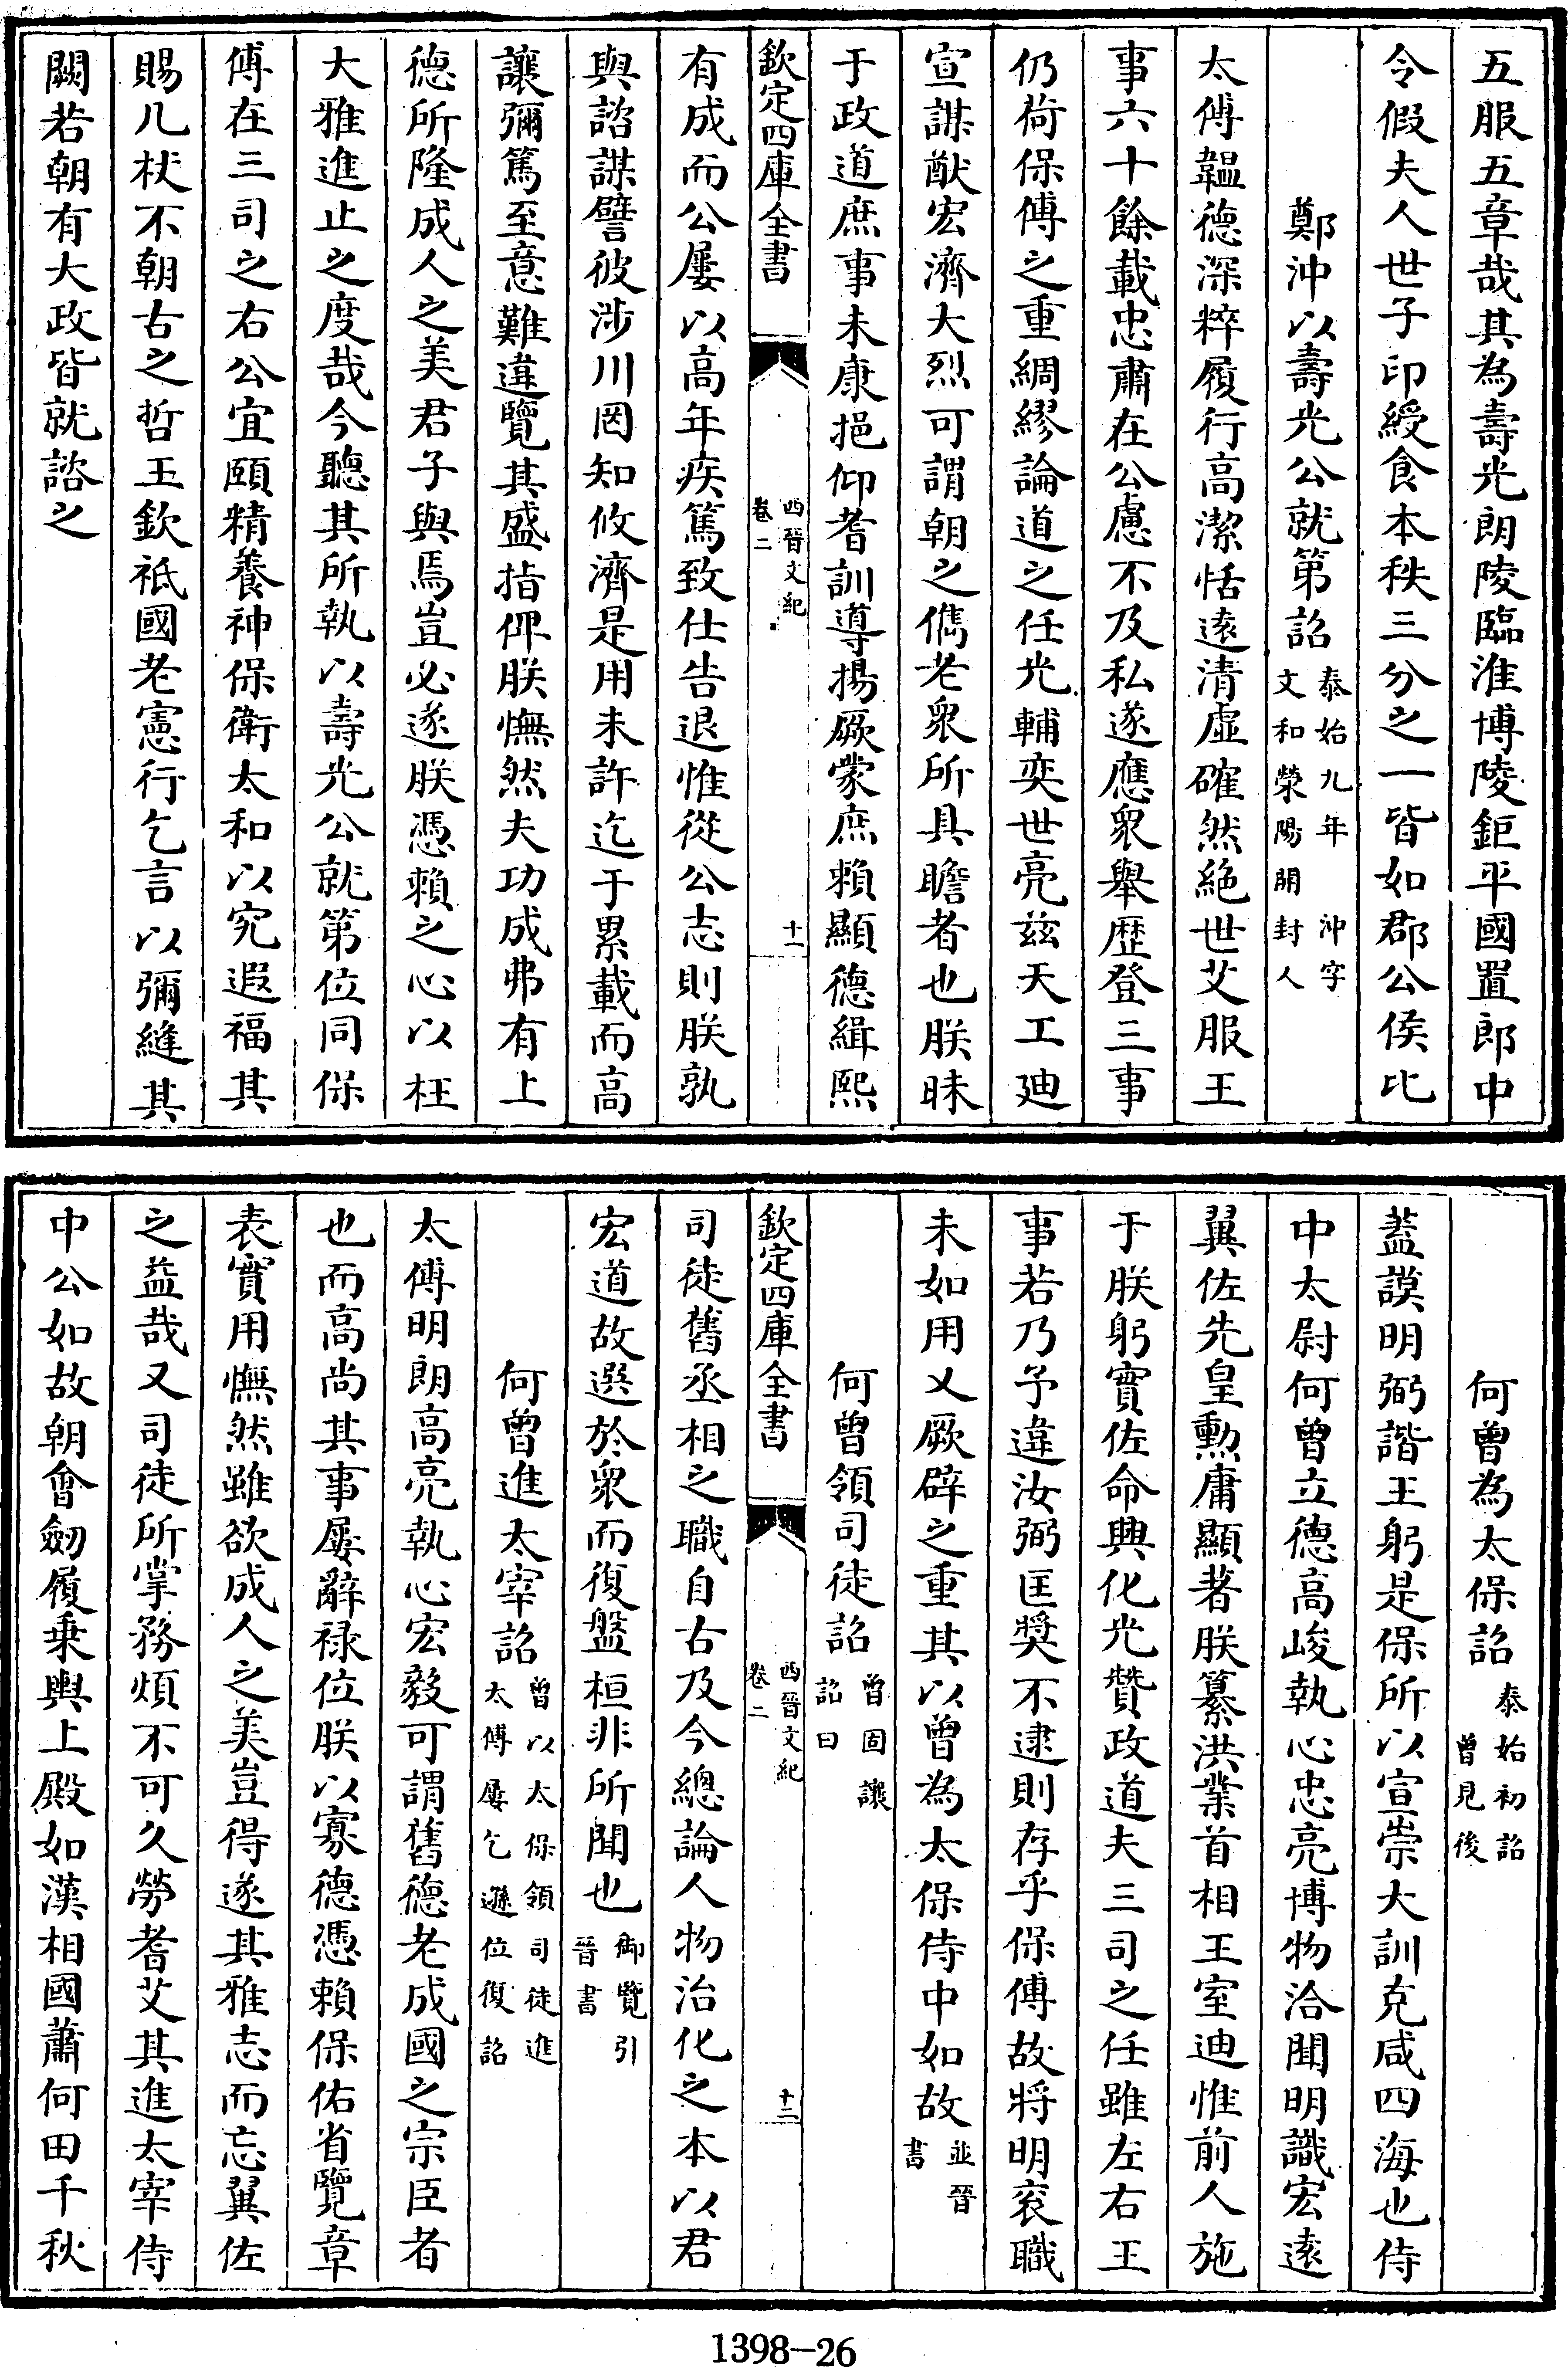 五服五章哉其為壽光朗陵臨淮博陵鉅平國置郎中
令假夫人世子印綬食本秩三分之一皆如郡公侯比
鄭沖以壽光公就第詔
泰始九年 沖字
文和滎陽開封人
太傅韞德深粹履行高潔恬遠清虛確然絕世艾服王
事六十餘載忠肅在公慮不及私遂應衆舉歷登三事
仍荷保傅之重綢繆論道之任光輔奕世亮茲天工迪
宣謀猷宏濟大烈可謂朝之儁老衆所具瞻者也朕昧
于政道庶事未康挹仰耆訓導揚厥蒙庶賴顯德緝熙
欽定四庫全書
西晉文紀
卷二
十一
有成而公屢以高年疾篤致仕告退惟從公志則朕孰
與諮謀譬彼涉川罔知攸濟是用未許迄于累載而高
讓彌篤至意難違覽其盛指俾朕憮然夫功成弗有上
德所隆成人之美君子與焉豈必遂朕憑賴之心以枉
大雅進止之度哉今聽其所執以壽光公就第位同保
傅在三司之右公宜頤精養神保衛太和以究遐福其
賜几杖不朝古之哲王欽祗國老憲行乞言以彌縫其
闕若朝有大政皆就諮之
何曾為太保詔
泰始初詔
曾見後
蓋謨明弼諧王躬是保所以宣崇大訓克咸四海也侍
中太尉何曾立德高峻執心忠亮博物洽聞明識宏遠
翼佐先皇勲庸顯著朕纂洪業首相王室迪惟前人施
于朕躬實佐命興化光贊政道夫三司之任雖左右王
事若乃予違汝弼匡奬不逮則存乎保傅故將明衮職
未如用乂厥辟之重其以曾為太保侍中如故
並晉
書
何曾領司徒詔
曾固讓
詔曰
欽定四庫全書
西晉文紀
卷二
十二
司徒舊丞相之職自古及今總論人物治化之本以君
宏道故選於衆而復盤桓非所聞也
御覽引
晉書
何曾進太宰詔
曾以太保領司徒進
太傅屢乞遜位復詔
太傅明朗高亮執心宏毅可謂舊德老成國之宗臣者
也而高尚其事屢辭禄位朕以寡德憑賴保佑省覽章
表實用憮然雖欲成人之美豈得遂其雅志而忘翼佐
之益哉又司徒所掌務煩不可久勞耆艾其進太宰侍
中公如故朝會劒履乗輿上殿如漢相國蕭何田千秋
1398-26